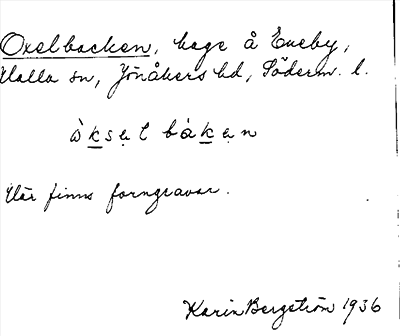 Oxelbacken, hage å Eneby,
Halla sn, Jönåkers hd, Söderm. l.
ὼksəl bàkən
Här finns forngravar.
Karin Bergström 1936